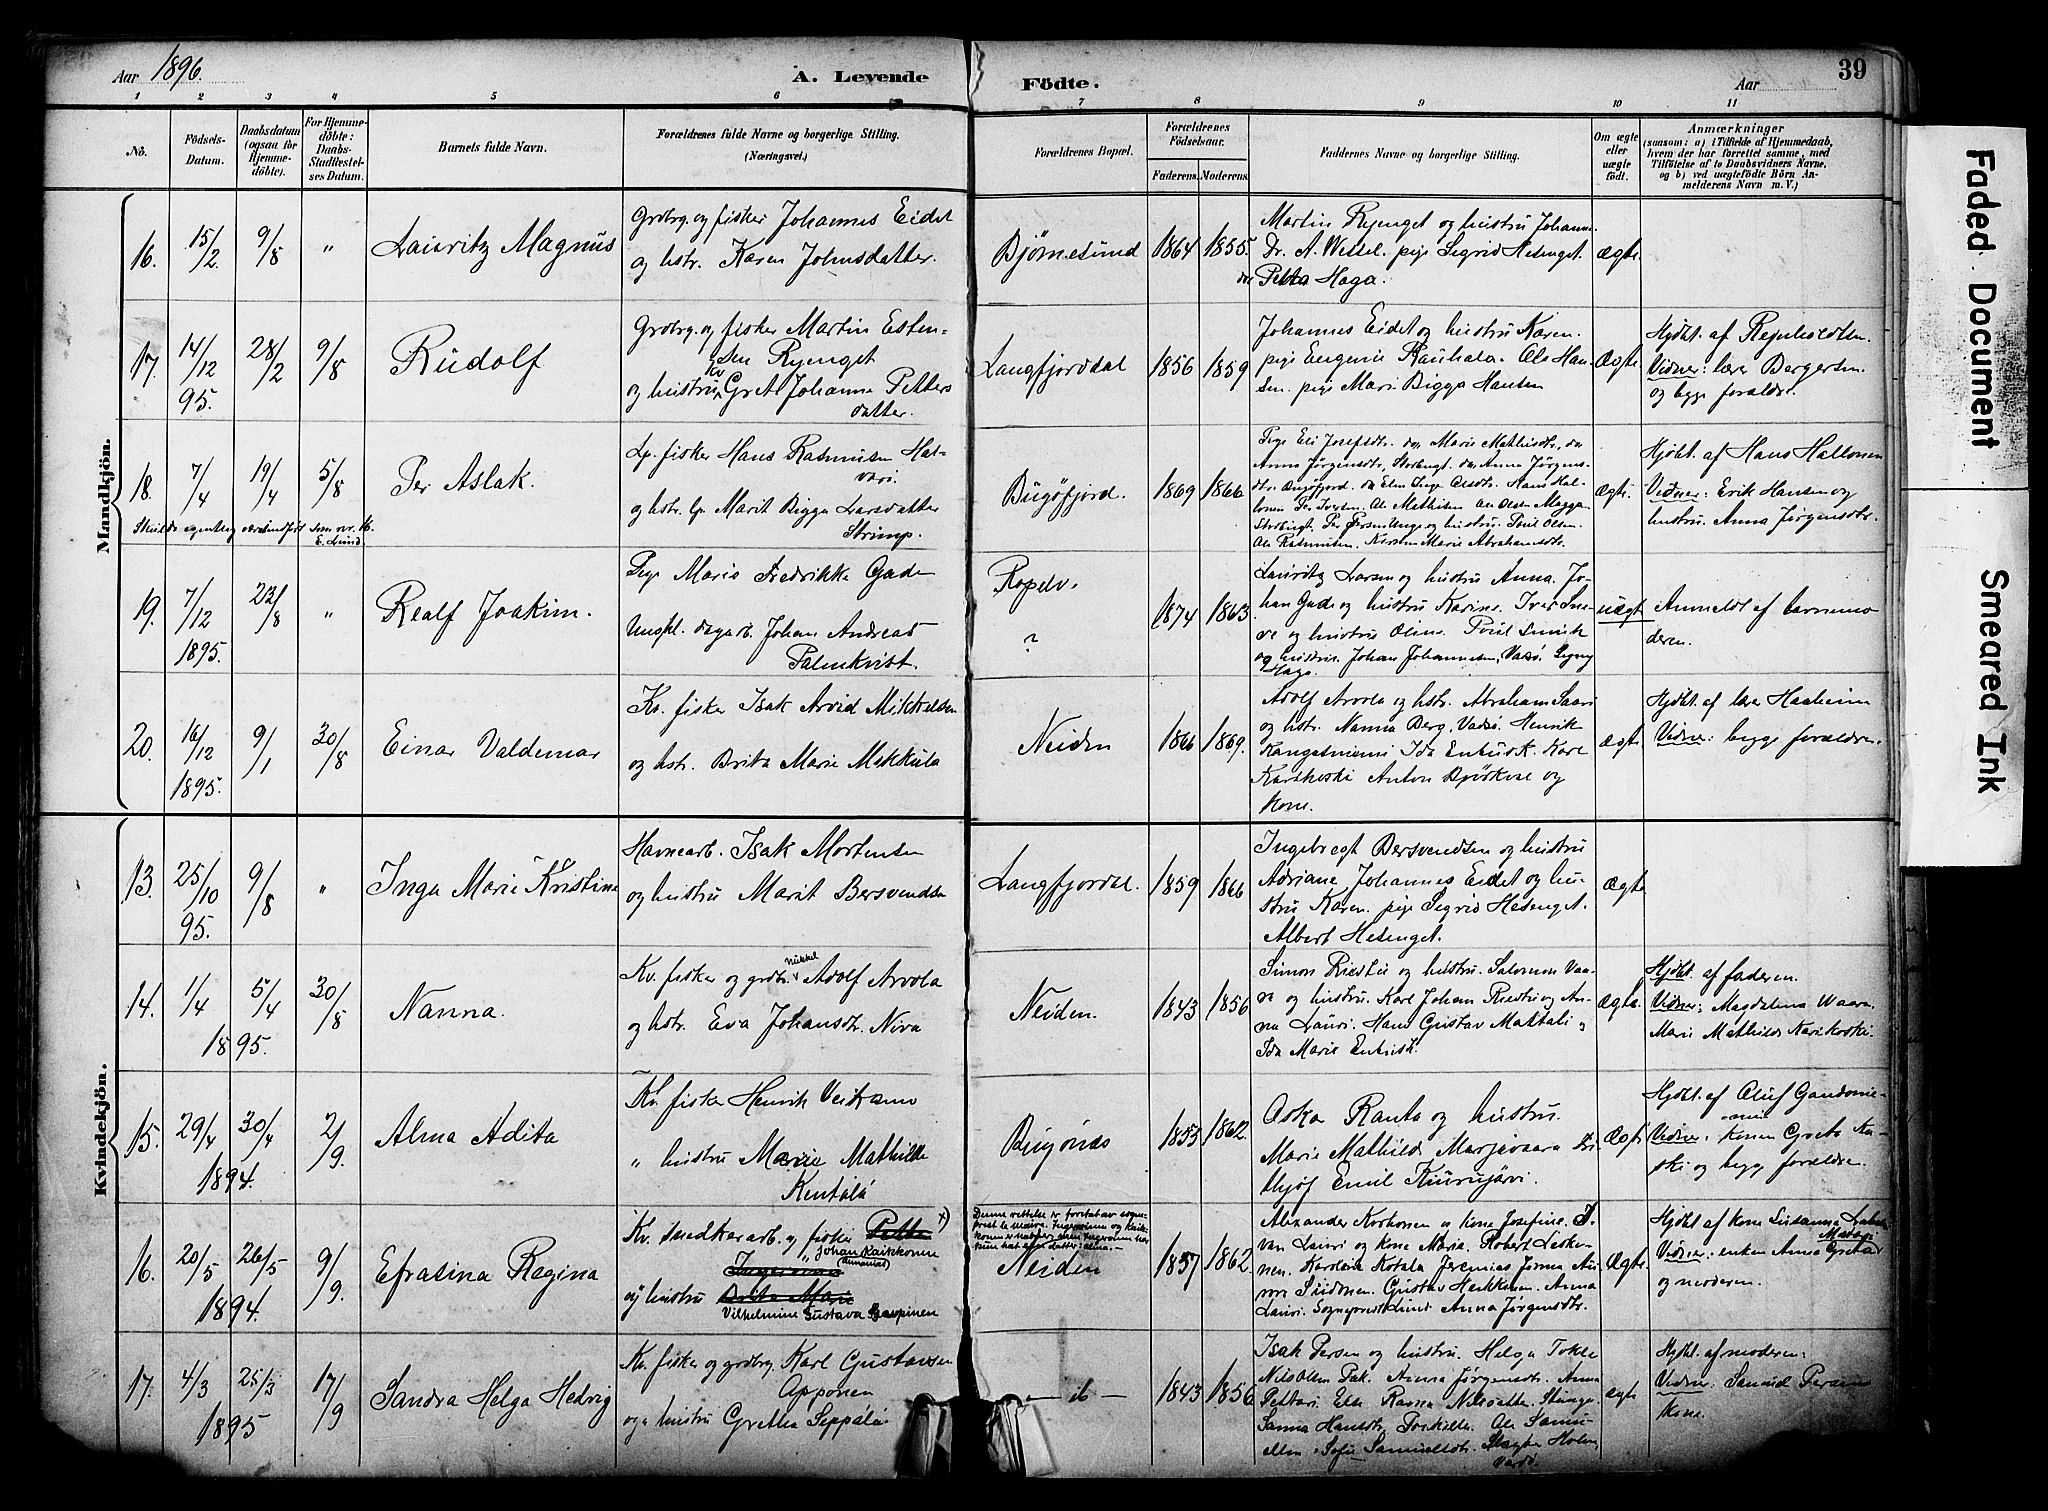 Aar 1896.
A. Levende
Födte.
Aar
39
1 2 3 4 5 6 7 8 9 10 11
No.
Födsels-
Datum.
Daabsdatum
(ogsaa for
Hjemme-
döbte).
For Hjemme-
döbte:
Daabs-
Stadfæstel-
ses Datum.
Barnets fulde Navn.
Forældrenes fulde Navne og borgerlige Stilling.
(Næringsvei.)
Forældrenes Bopæl.
Forældrenes
Födselsaar.
Faderens. Moderens.
Faddernes Navne og borgerlige Stilling.
Om ægte
eller
uægte
födt.
Anmærkninger
(saasom: a) i Tilfælde af Hjemmedaab,
hvem der har forrettet samme, med
Tilföielse af to Daabsvidners Navne,
og b) ved uægtefödte Börn An-
melderens Navn m. V.)
Mandkjön.
16. 15/2 9/8 " Lauritz Magnus
Grdbrg. og fisker Johannes Eidet
og hstr. Karen Johnsdatter.
Bjørnesund 1864 1855.
Martin Ryenget og hustru Johanne
Dr. A. Wessel. pige Sigrid Hesenget.
Petra Haga.
Ægte
17. 14/12 95. 28/2 9/8 Rudolf
Grdbrg. og fisker Martin Esten-
sen Ryenget
og hustru Gret Johanna Petters
datter.
Langfjorddal 1856 1859
Johannes Eidet og hustru Karen.
pige Eugenie Rauhala. Ole Han-
sen. pige Mari Bigga Hansen
Ægte
Hjdbt. af Reinholdtsen.
Vidner: lærer Bergersen
og begge forældre.
18. 7/4 19/4 5/8 Per Aslak.
Lp. fisker Hans Rasmusen Hal-
vari.
og hstr. Lp. Marit Bigga Larsdatter
Strimp.
Skulde egentlig været indført som nr. 16.
E. Lund.
Bugöfjord. 1869 1866
Pige Eli Josefsdtr. do. Marie Mathisdtr. do
Anna Jørgensdtr. Storbugt. do. Anna Jørgens-
dtr. Bugøfjord. do Elen Inge Olsdtr. Hans Hal-
lonen Per Iversen. Ole Mathisen Ole Olsen Magga
Storbugt. Per Persen Lange og hustru. Poul Olsen.
Ole Rasmusen. Kirsten Marie Abrahamsdtr.
Ægte.
Hjdbt. af Hans Hallonen
Vidner: Erik Hansen og
hustru Anna Jørgensdtr.
19. 7/12 1895. 23/8 " Realf Joakim.
Pige Marie Fredrikke Gade
Ungkl. dagarb. Johan Andreas
Palmkvist.
Ropelv.
?
1874 1863
Lauritz Larsen og hustru Anna. Jo-
han Gade og hustru Karine. Iver Sne-
ve og hustru Oline. Poul Simik
og hustru. Johan Johannesen, Vadsö. Signy
Haga.
uægt.
Anmeldt af barnemo
deren.
20. 16/12 1895. 9/1 30/8 Einar Valdemar
Kv. fisker Isak Arvid Mikkelsen
og hstr. Brita Marie Mikkula
Neiden 1866 1869.
Adolf Arvola og hstr. Abraham Saari
og hstr. Nanna Berg, Vadsö. Henrik
Kangasniemi Ida Enbusk. Karl
Karikoski Anton Björkne og
kone.
Ægte
Hjdbt. af lærer Haaheim
Vidner: begge forældre.
Kvindekjön.
13. 25/10 95. 9/8 " Inga Marie Kristine
Havnearb. Isak Mortensen
og hustru Marit Bersvendsen
Langfjordal. 1859 1866
Ingebregt Bersvendsen og hustru
Adriane Johannes Eidet og hu-
stru Karen. pige Sigrid Hesenget.
Albert Hesenget.
Ægte
14. 1/4 5/4 30/8 1895. Nanna.
Kv. fisker og grdbr. Mikkel Adolf Arvola
og hstr. Eva Johansdtr. Niva
Neiden. 1843 1856
Simon Riestu og hustru. Salomon Vaa-
ra og hustru. Karl Johan Riestu og An-
na Lauri. Hans Gustav Mattali og
Ida Marie Enbusk.
Ægte
Hjdbt. af faderen.
Vidner: Magdalena Waara
Marie Mathilde Karikoski.
15. 29/4 30/4 2/9 1894. Alma Adita
Kv. fisker Henrik Veikanno
" hustru Marie Mathilde
Kentälä
Bugönæs 1853 1862.
Oskar Ranta og hustru.
Marie Mathilde Marjavaara Fri-
thjof Emil Kiurujärvi.
Ægte
Hjdbt. af Oluf Gandomie-
Vidner: konen Greta Ka-
ski og begge forældre.
16. 20/5 26/5 9/9 1894. Efrasina Regina
Kv. snedkerarb. og fisker
Johan Kaikkonen
(Annanias)
og hustru
Vilhelmine Gustava Seppinen
Denne rettelse er foretat av sogne-
prest
Neiden 1857 1862
Alexander Korhonen og kone Josefine. I-
van Lauri og kone Maria. Robert Leske-
nen. Karoline Kotala Jeremias Jonna Au-
rora Siidonen. Gustav Heikkinen. Anna
Lauri. Sogneprest Lund Anna Jørgensdtr.
Ægte
Hjdbt. af kone Susanna
Vidner: enken Anna Greta
og moderen.
17. 4/3 25/3 17/9 1895 Sandra Helga Hedvig
Kv. fisker og grdbrg. Karl Gustavsen
Apponen
og hustru Gretha Seppälä
— ib — 1843 1856
Isak Persen og hustru. Helga Tokle
Nils Olsen Pak. Anna Jørgensdtr. Anna
Pettari Else Ravna Nilsdatter.
Sanna Hansdtr. Ole Samu-
elsen. Sofie Samuelsdtr. Holm,
Vardö.
ægte
Hjdbt. af moderen:
Vidner: Samuel Persens
kone.
Faded Document
Smeared Ink